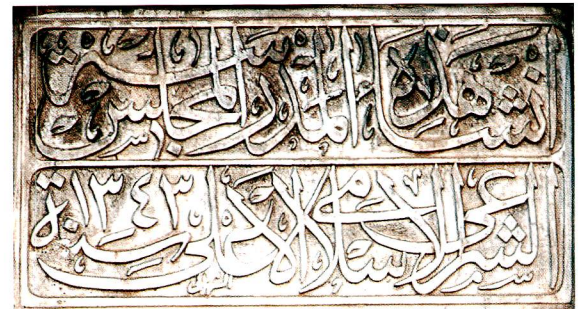 انشأ هذه المدرسة المجلس
الشرعي الاسلامي الاعلى سنة ١٣٤٣